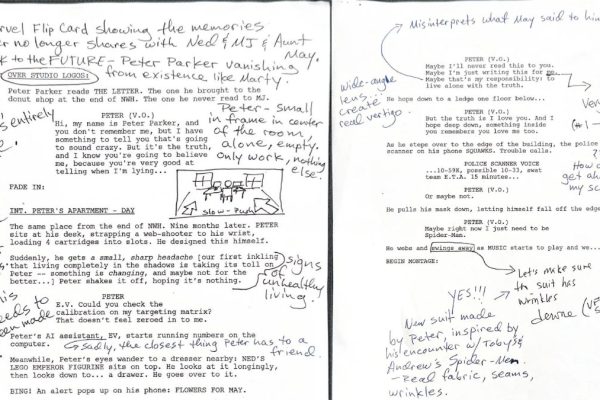 Marvel Flip Card showing the memories
no longer shares with Ned & MJ & Aunt
May.
to the FUTURE - Peter Parker vanishing
from existence like Marty.
OVER STUDIO LOGOS:
Peter Parker reads THE LETTER. The one he brought to the
donut shop at the end of NWH. The one he never read to MJ.
entirely
PETER (V.O.)
Hi, my name is Peter Parker, and
you don't remember me, but I have
something to tell you that's going
to sound crazy. But it's the truth,
and I know you're going to believe
me, because you're very good at
telling when I'm lying...
Peter - small
in frame in center
of the room,
alone, empty.
Only work, nothing
else
FADE IN:
slow-push
INT. PETER'S APARTMENT - DAY
The same place from the end of NWH. Nine months later. PETER
sits at his desk, strapping a web-shooter to his wrist,
loading 4 cartridges into slots. He designed this himself.
Suddenly, he gets a small, sharp headache [our first inkling
that living completely in the shadows is taking its toll on
Peter -- something is changing, and maybe not for the
better...] Peter shakes it off, hoping it's nothing.
signs
of
unhealthy
living.
his
needs to
been made
PETER
E.V. Could you check the
calibration on my targeting matrix?
That doesn't feel zeroed in to me.
Peter's AI assistant, EV, starts running numbers on the
computer.
Sadly, the closest thing Peter has to a
friend.
Meanwhile, Peter's eyes wander to a dresser nearby: NED'S
LEGO EMPEROR FIGURINE sits on top. He looks at it longingly,
then looks down to... a drawer. He goes over to it.
BING! An alert pops up on his phone: FLOWERS FOR MAY.
Misinterprets what May said to him
PETER (V.O.)
Maybe I'll never read this to you.
Maybe I'm just writing this for me.
Maybe that's my responsibility: to
live alone with the truth.
wide-angle
lens...
create
real vertigo.
He hops down to a ledge one floor below...
PETER (V.O.)
But the truth is I love you. And I
hope deep down, something inside
you remembers you love me too.
As he steps over to the edge of the building, the police
scanner on his phone SQUAWKS. Trouble calls.
POLICE SCANNER VOICE
...10-59H, possible 10-33, swat
team E.T.A. 15 minutes...
How
get
my
PETER (V.O.)
Or maybe not.
He pulls his mask down, letting himself fall off the edge
PETER (V.O.)
Maybe right now I just need to be
Spider-Man.
He webs and swings away as MUSIC starts to play and we...
BEGIN MONTAGE:
Let's make sure
the suit has
wrinkles
YES!!!
New suit made
by Peter, inspired by
his encounter w/ Toby's &
Andrew's Spider-Men
- Real fabric, seams,
wrinkles.